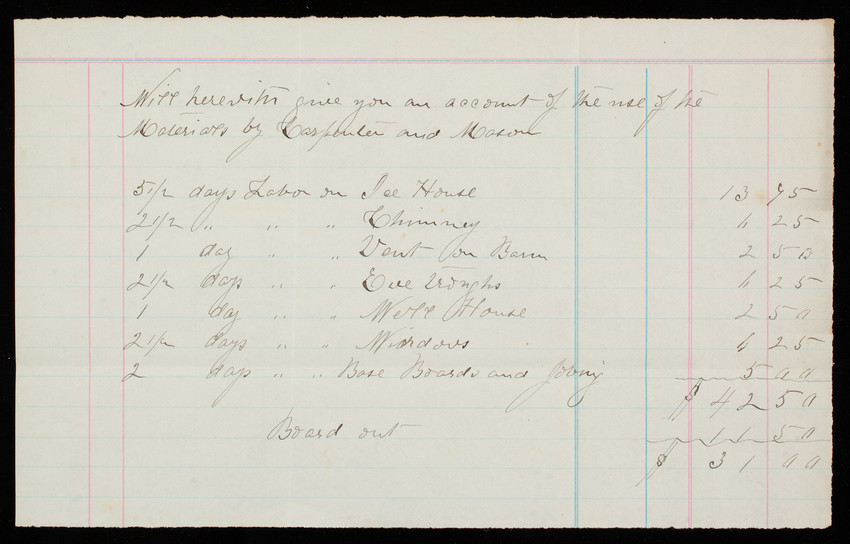 Will herewith give you an account of the use of the
Materials by Carpenter and Mason
5 1/2 days Labor on Ice House 13 75
2 1/2 " " " Chimney 6 25
1 day " " Vent on Barn 2 50
2 1/2 days " " Eve Troughs 6 25
1 day " " Well House 2 50
2 1/2 days " " Windows 6 25
2 days " " Base Boards and 5 00
$ 42 50
Board out 11 50
$ 31 00